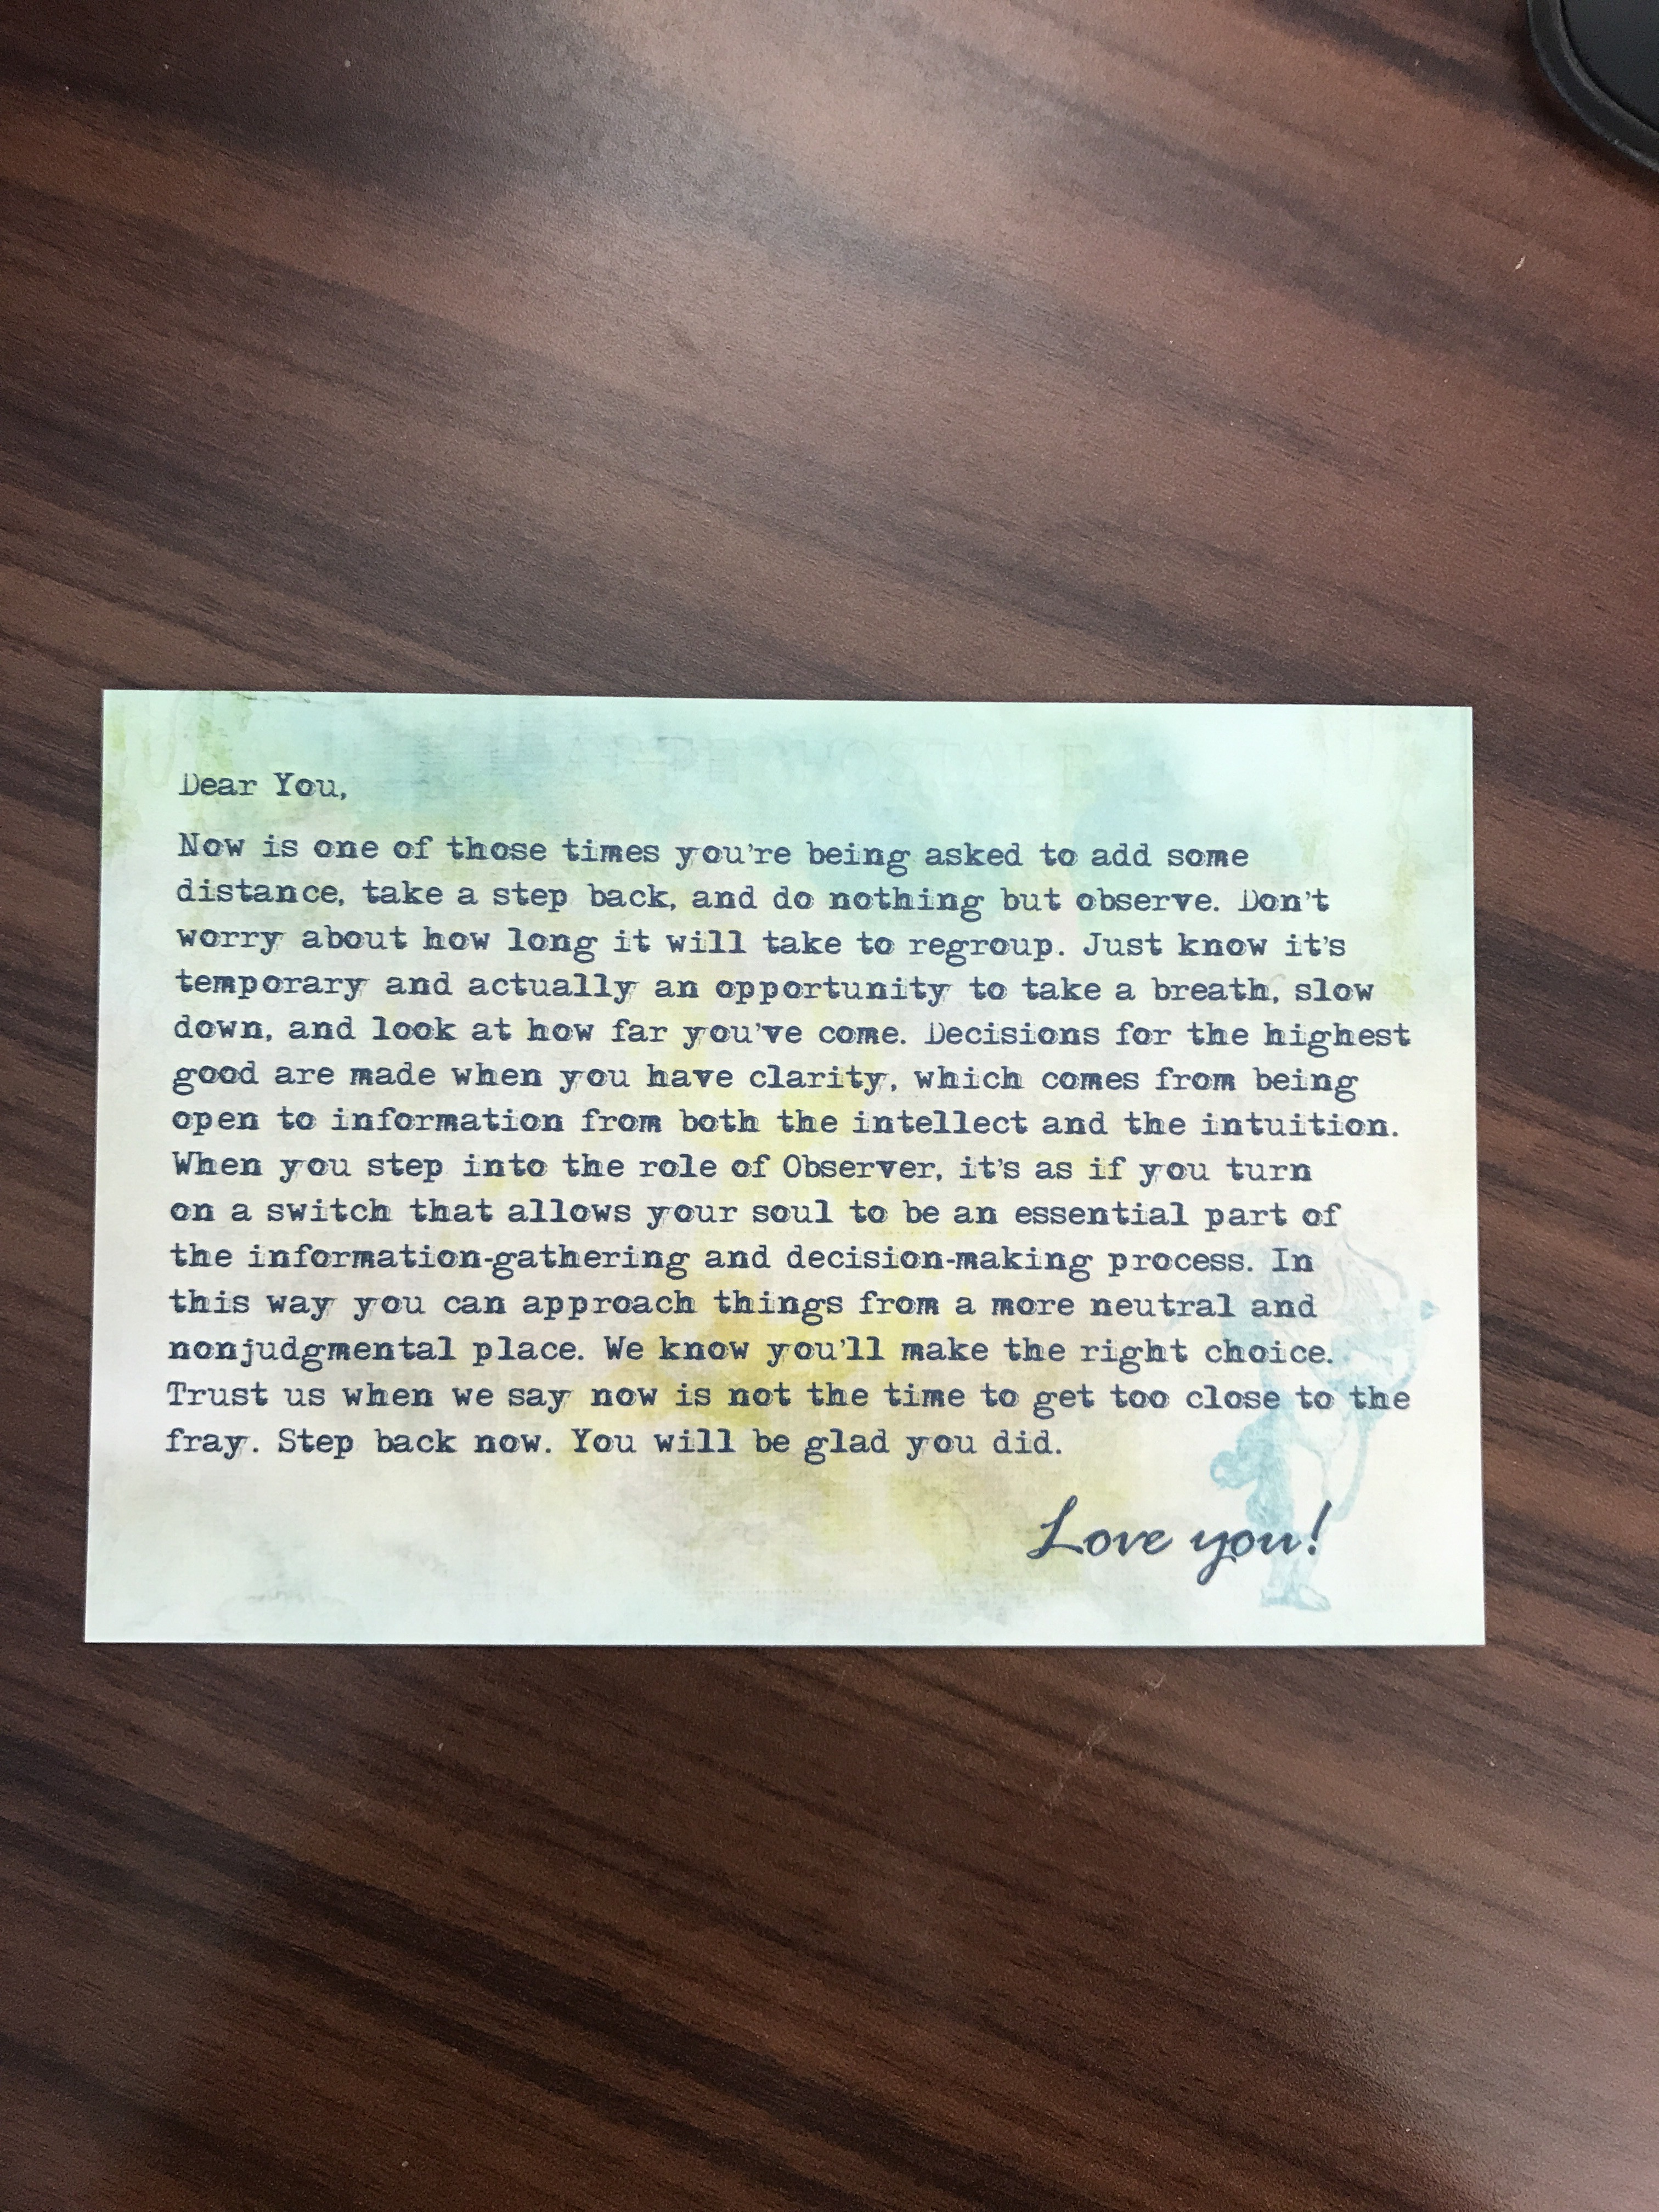 Dear You,
Now is one of those times you're being asked to add some
distance, take a step back, and do nothing but observe. Don't
worry about how long it will take to regroup. Just know it's
temporary and actually an opportunity to take a breath, slow
down, and look at how far you've come. Decisions for the highest
good are made when you have clarity, which comes from being
open to information from both the intellect and the intuition.
When you step into the role of Observer, it's as if you turn
on a switch that allows your soul to be an essential part of
the information-gathering and decision-making process. In
this way you can approach things from a more neutral and
nonjudgmental place. We know you'll make the right choice.
Trust us when we say now is not the time to get too close to the
fray. Step back now. You will be glad you did.
Love you!